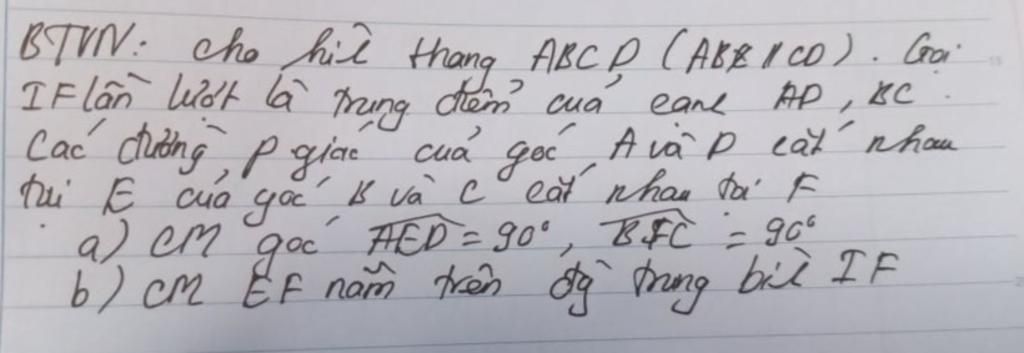 BTVN: cho hìh thang ABCD (AB//CD). Gọi
I F lần lượt là trung điểm của cạnh AD, BC.
Các đường p giác của góc A và D cắt nhau
tại E của góc B và C cắt nhau tại F
a) CM góc AED = 90°, BFC = 90°
b) CM EF nằm trên đg trung bìh IF